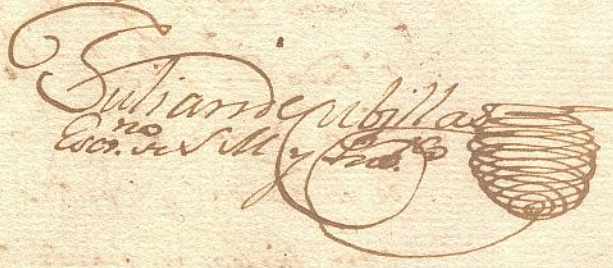 Julian de Cubillas
Escr.no de S M y Pub.co